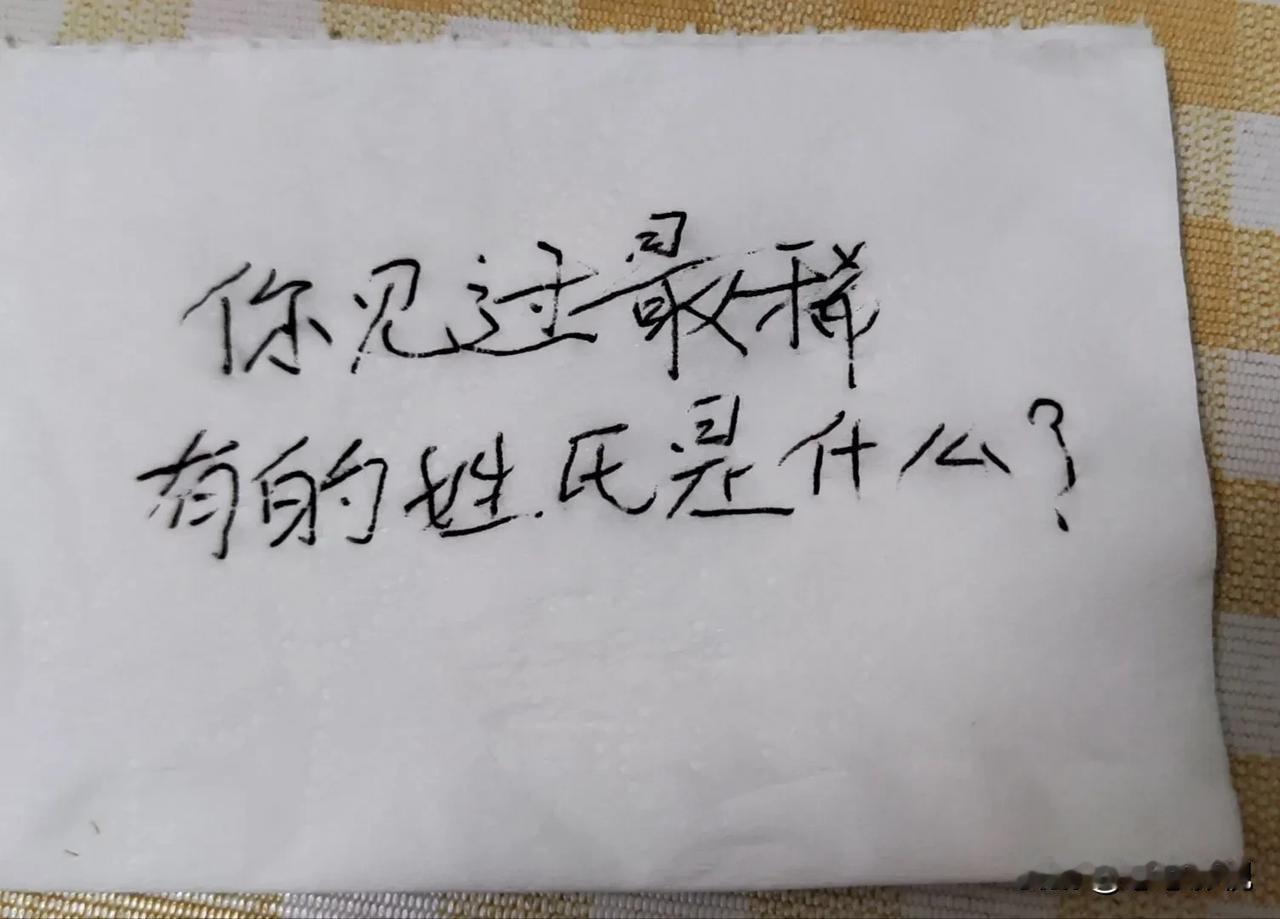 你见过最稀
有的姓氏是什么?